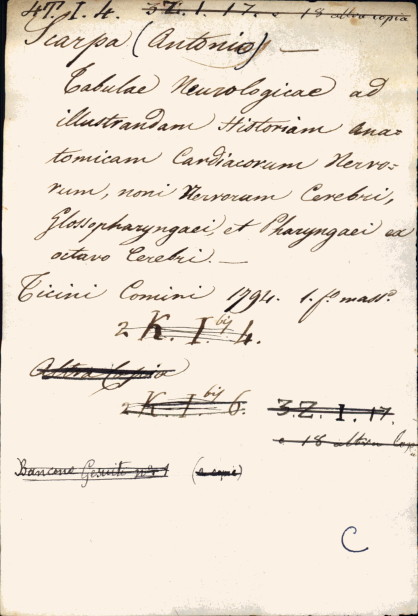 4T. I. 4. 3Z. I. 17. e 18 altra copia
Scarpa (Antonio) —
Tabulae Neurologicae ad
illustrandam Historiam Ana=
tomicam Cardiacorum Nervo=
rum, noni Nervorum Cerebri,
Glossopharyngaei, et Pharyngaei ex
octavo Cerebri. —
Ticini Comini 1794. 1. fº. massº.
2 K. I. bis 4.
Altra Copia
2 K. I. bis 6. 3. Z. I. 17.
e 18 altra Copia
Bancone Gesuiti nº 1 (2 copie)
C